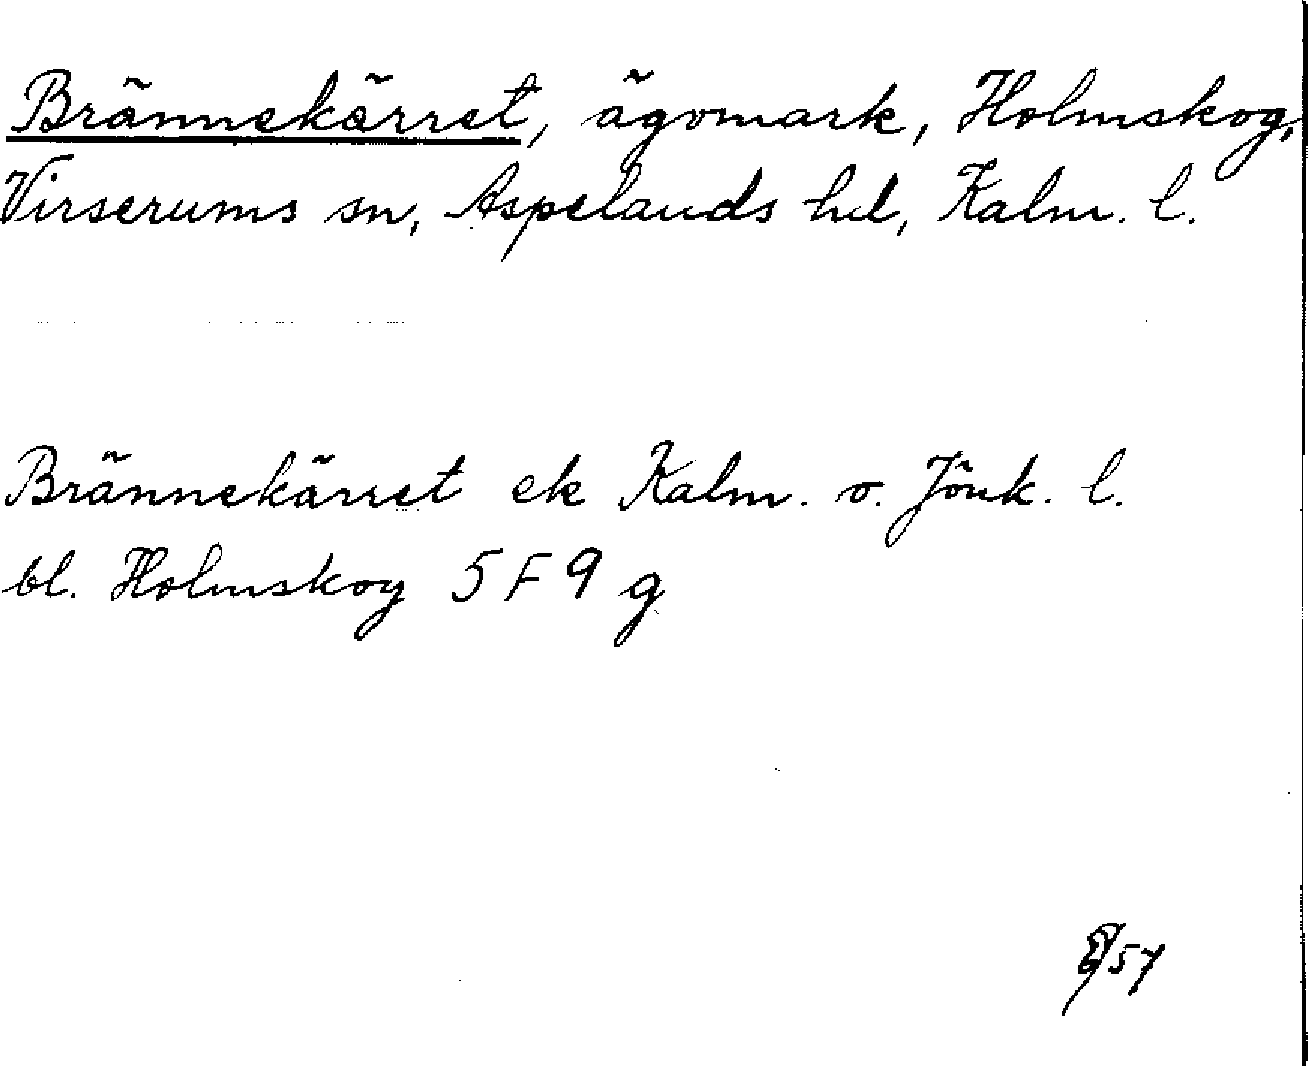 Brännekärret, ägomark, Holmskog,
Virserums sn, Aspelands hd, Kalm. l.
Brännekärret ek Kalm. o. Jönk. l.
bl. Holmskog 5 F 9 g